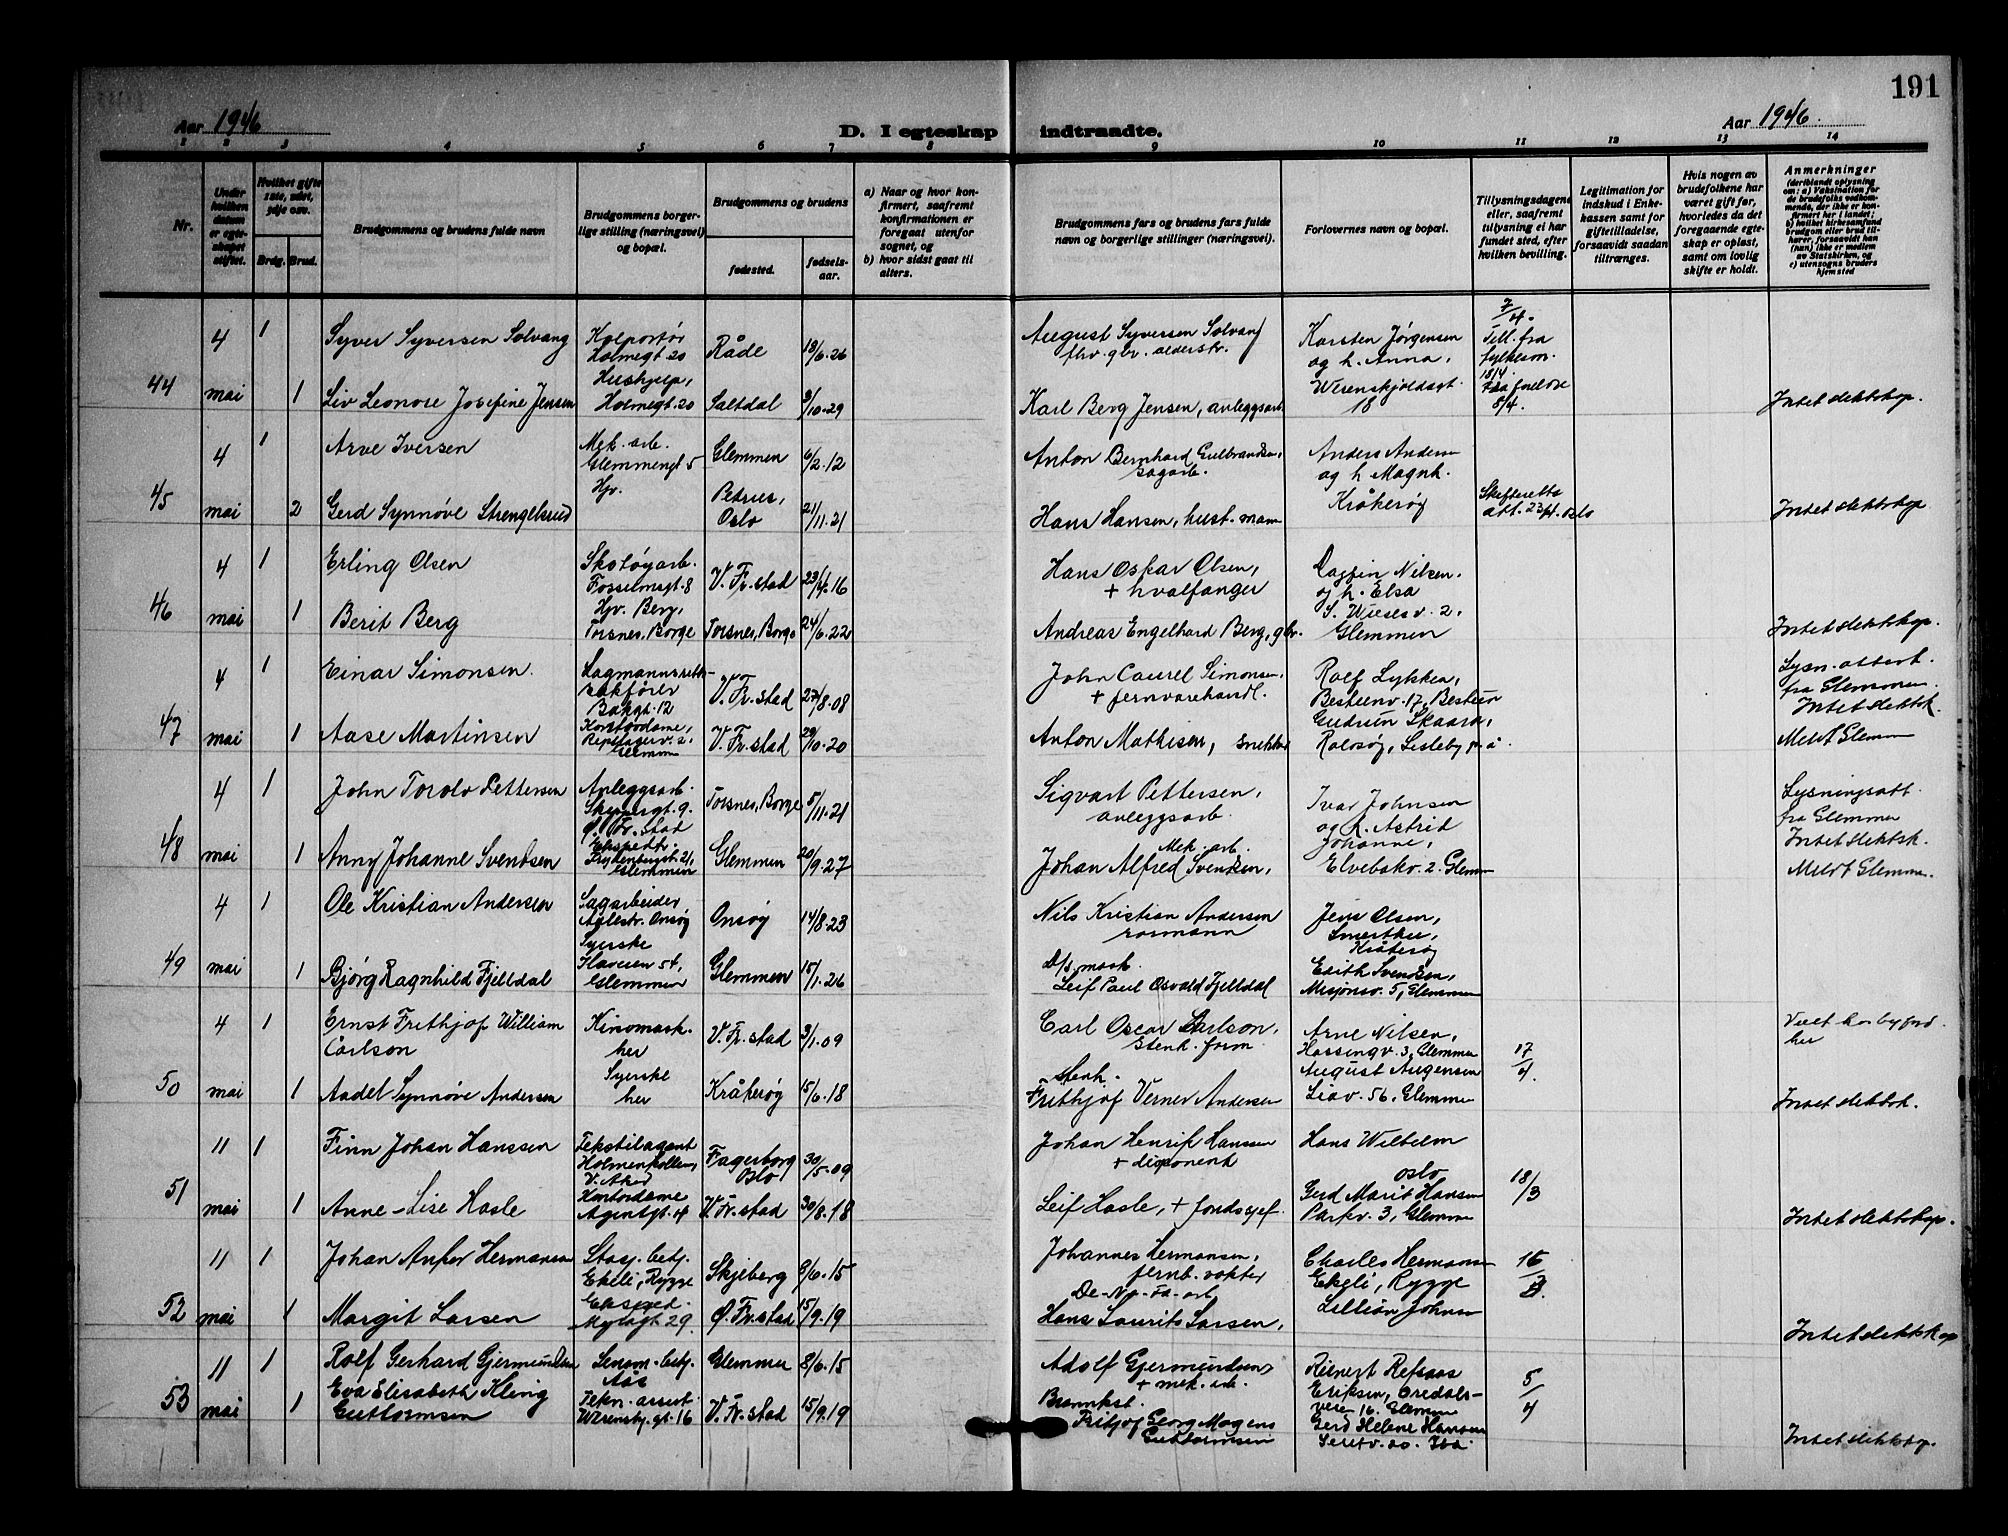 191
Aar 1946
D. I egteskap indtraadte.
Aar 1946
1 2 3 4 5 6 7 8 9 10 11 12 13 14
Nr.
Under hvilken datum er egteskapet stiftet.
Hvilket gifte 1ste, 2det, 3dje osv.
Brdg. Brud.
Brudgommens og brudens fulde navn
Brudgommens borgerlige stilling (næringsvei) og bopæl.
Brudgommens og brudens
fødested.
fødselsaar.
a) Naar og hvor konfirmert, saafremt konfirmationen er foregaat utenfor sognet, og
b) hvor sidst gaat til alters.
Brudgommens fars og brudens fars fulde navn og borgerlige stillinger (næringsvei).
Forlovernes navn og bopæl.
Tillysningsdagene eller, saafremt tillysning ei har fundet sted, efter hvilken bevilling.
Legitimation for indskud i Enkekassen samt for giftetilladelse, forsaavidt saadan tiltrænges.
Hvis nogen av brudefolkene har været gift før, hvorledes da det foregaaende egteskap er opløst, samt om lovlig skifte er holdt.
Anmerkninger
(deriblandt oplysning om: a) Vaksination for de brudefolks vedkommende, der ikke er konfirmert her i landet; b) hvilket kirkesamfund brudgom eller brud tilhører, forsaavidt han (hun) ikke er medlem av Statskirken, og c) utensogns bruders hjemsted
44
4 mai
1
Syver Syversen Solvang
Kolportør
Holmegt. 20
Råde
18/6.26
August Syversen Solvang
fhv. gbr. alderstr.
Karsten Jørgensen
og h. Anna,
Werenskjoldsgt.
18
7/4.
Till. fra
18/4.
8/4.
1
Liv Leonore Josefine Jensen
Hushjelp,
Holmegt. 20
Saltdal
3/10.29
Karl Berg Jensen, anleggsarb.
Intet slektskap.
45
4 mai
1
Arve Iversen
Mek. arb.
Glemmengt 5
Glemmen
6/2.12
Anton Bernhard Gulbrandsen,
sagarb.
Anders Andersen
og h Magnh.
Kråkerøy
2
Gerd Synnøve Strengelsrud
Hjv.
Petrus,
Oslo
21/11.21
Hans Hansen, hust. mann
Skifteretts
att. 23/4. Oslo
Intet slektskap
46
4 mai
1
Erling Olsen
Skotøyarb.
V. Fr.stad
23/4.16
Hans Oskar Olsen,
+ hvalfanger
Dagfin Nilsen.
og h. Elsa
S. Wieses v. 2,
Glemmen
1
Berit Berg
Hjv. Berg,
Torsnes, Borge
Torsnes, Borge
24/6.22
Andreas Engelhard Berg, gbr.
Intet slektskap.
47
4 mai
1
Einar Simonsen.
Lagmannsretts-
sakfører
Bakgt. 12
V. Fr.stad
27/8.08
John Laurel Simonsen,
+ jernvarehandl.
Rolf Lykken,
Bestumv. 17, Bestum
Gudrun Skaara,
Rolvsøy, Lisleby
Lysn. attest.
fra Glemmen
Intet slektsk.
Meldt Glemm
1
Aase Martinsen
Kontordame,
Repslagerv. 2,
Glemmen
V. Fr.stad
29/10.20
Anton Mathisen, snekker
48
4 mai
1
John Torolv Pettersen
Anleggsarb.
Skippergt. 9.
Ø. Fr. stad
Torsnes, Borge
5/11.21
Sigvart Pettersen,
anleggsarb.
Ivar Johnsen
og h. Astrid
Johanne,
Elvebakv. 2. Glemm
Lysningsatt.
fra Glemmen
Intet slektsk.
Meldt Glemmen.
1
Anny Johanne Svendsen
Ekspedtr.
Glemmen
Glemmen
20/9.27
Mek. arb.
Johan Alfred Svendsen,
49
4 mai
1
Ole Kristian Andersen
Sagarbeider
Onsøy
Onsøy
14/8.23
Nils Kristian Andersen
rormann
Jens Olsen,
Kråkerøy
Edith Svendsen,
Misjonsv. 5, Glemmen
1
Bjørg Ragnhild Fjelldal
Syerske
Haveien 54,
Glemmen
Glemmen
15/1.26
D/s mask.
Leif Paul Osvald Fjelldal
50
4 mai
1
Ernst Frithjof William
Carlson
Kinomask.
her
V. Fr.stad
3/1.09
Carl Oscar Carlson,
stenh. form.
Arne Nilsen,
Hassingv. 3, Glemmen
August Augensen
Liav. 56, Glemmen
17/4
Viet hos byfogd.
her
1
Aadel Synnøve Andersen
Syerske
her
Kråkerøy
15/6.18
Stenh.
Frithjof Verner Andersen
Intet slektsk.
51
11 mai
1
Finn Johan Hanssen
Tekstilagent
Holmenkollen,
V. Aker
Fagerborg
Oslo
30/5.09
Johan Henrik Hanssen
+ disponent
Hans Wilhelm
Oslo
Gerd Marit Hansen
Parkv. 3, Glemmen
18/3
1
Anne-Lise Hasle
Kontordame
Agentgt. 4
V. Fr.stad
30/8.18
Leif Hasle, + fondssjef
Intet slektskap.
52
11 mai
1
Johan Anker Hermansen
Stasj. betj.
Ekeli, Rygge
Skjeberg
9/6.15
Johannes Hermansen,
jernb. vokter
Charles Hermansen
Ekeli, Rygge
Lillian Johnsen
16/3.
1
Margit Larsen
Eksped.
Ø. Fr.stad
15/9.19
De-No-Fa-arb
Hans Laurits Larsen,
Intet slektskap
53
11 mai
1
Rolf Gerhard Gjermundsen
Lensm. betj.
Aas
Glemmen
8/6.15
Adolf Gjermundsen,
+ mek. arb.
Reinert Refsaas
Eriksen, Oredals-
veien 16. Glemmen
Gerd Helene Hansen
5/4
1
Eva Elisabeth Kling
Guttormsen
Tekn. assist.
Werenskj. gt. 16
V. Fr.stad
15/9.19
Brannkst.
Frithjof Georg Mogens
Guttormsen
Intet slektskap.